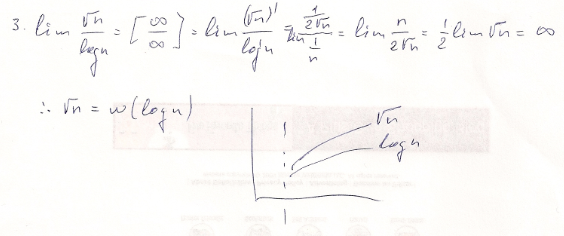 3. lim √n/logn = [∞/∞] = lim (√n)'/log'n = lim (1/(2√n))/(1/n) = lim n/(2√n) = 1/2 lim √n = ∞
∴ √n = w(logn)
√n
logn